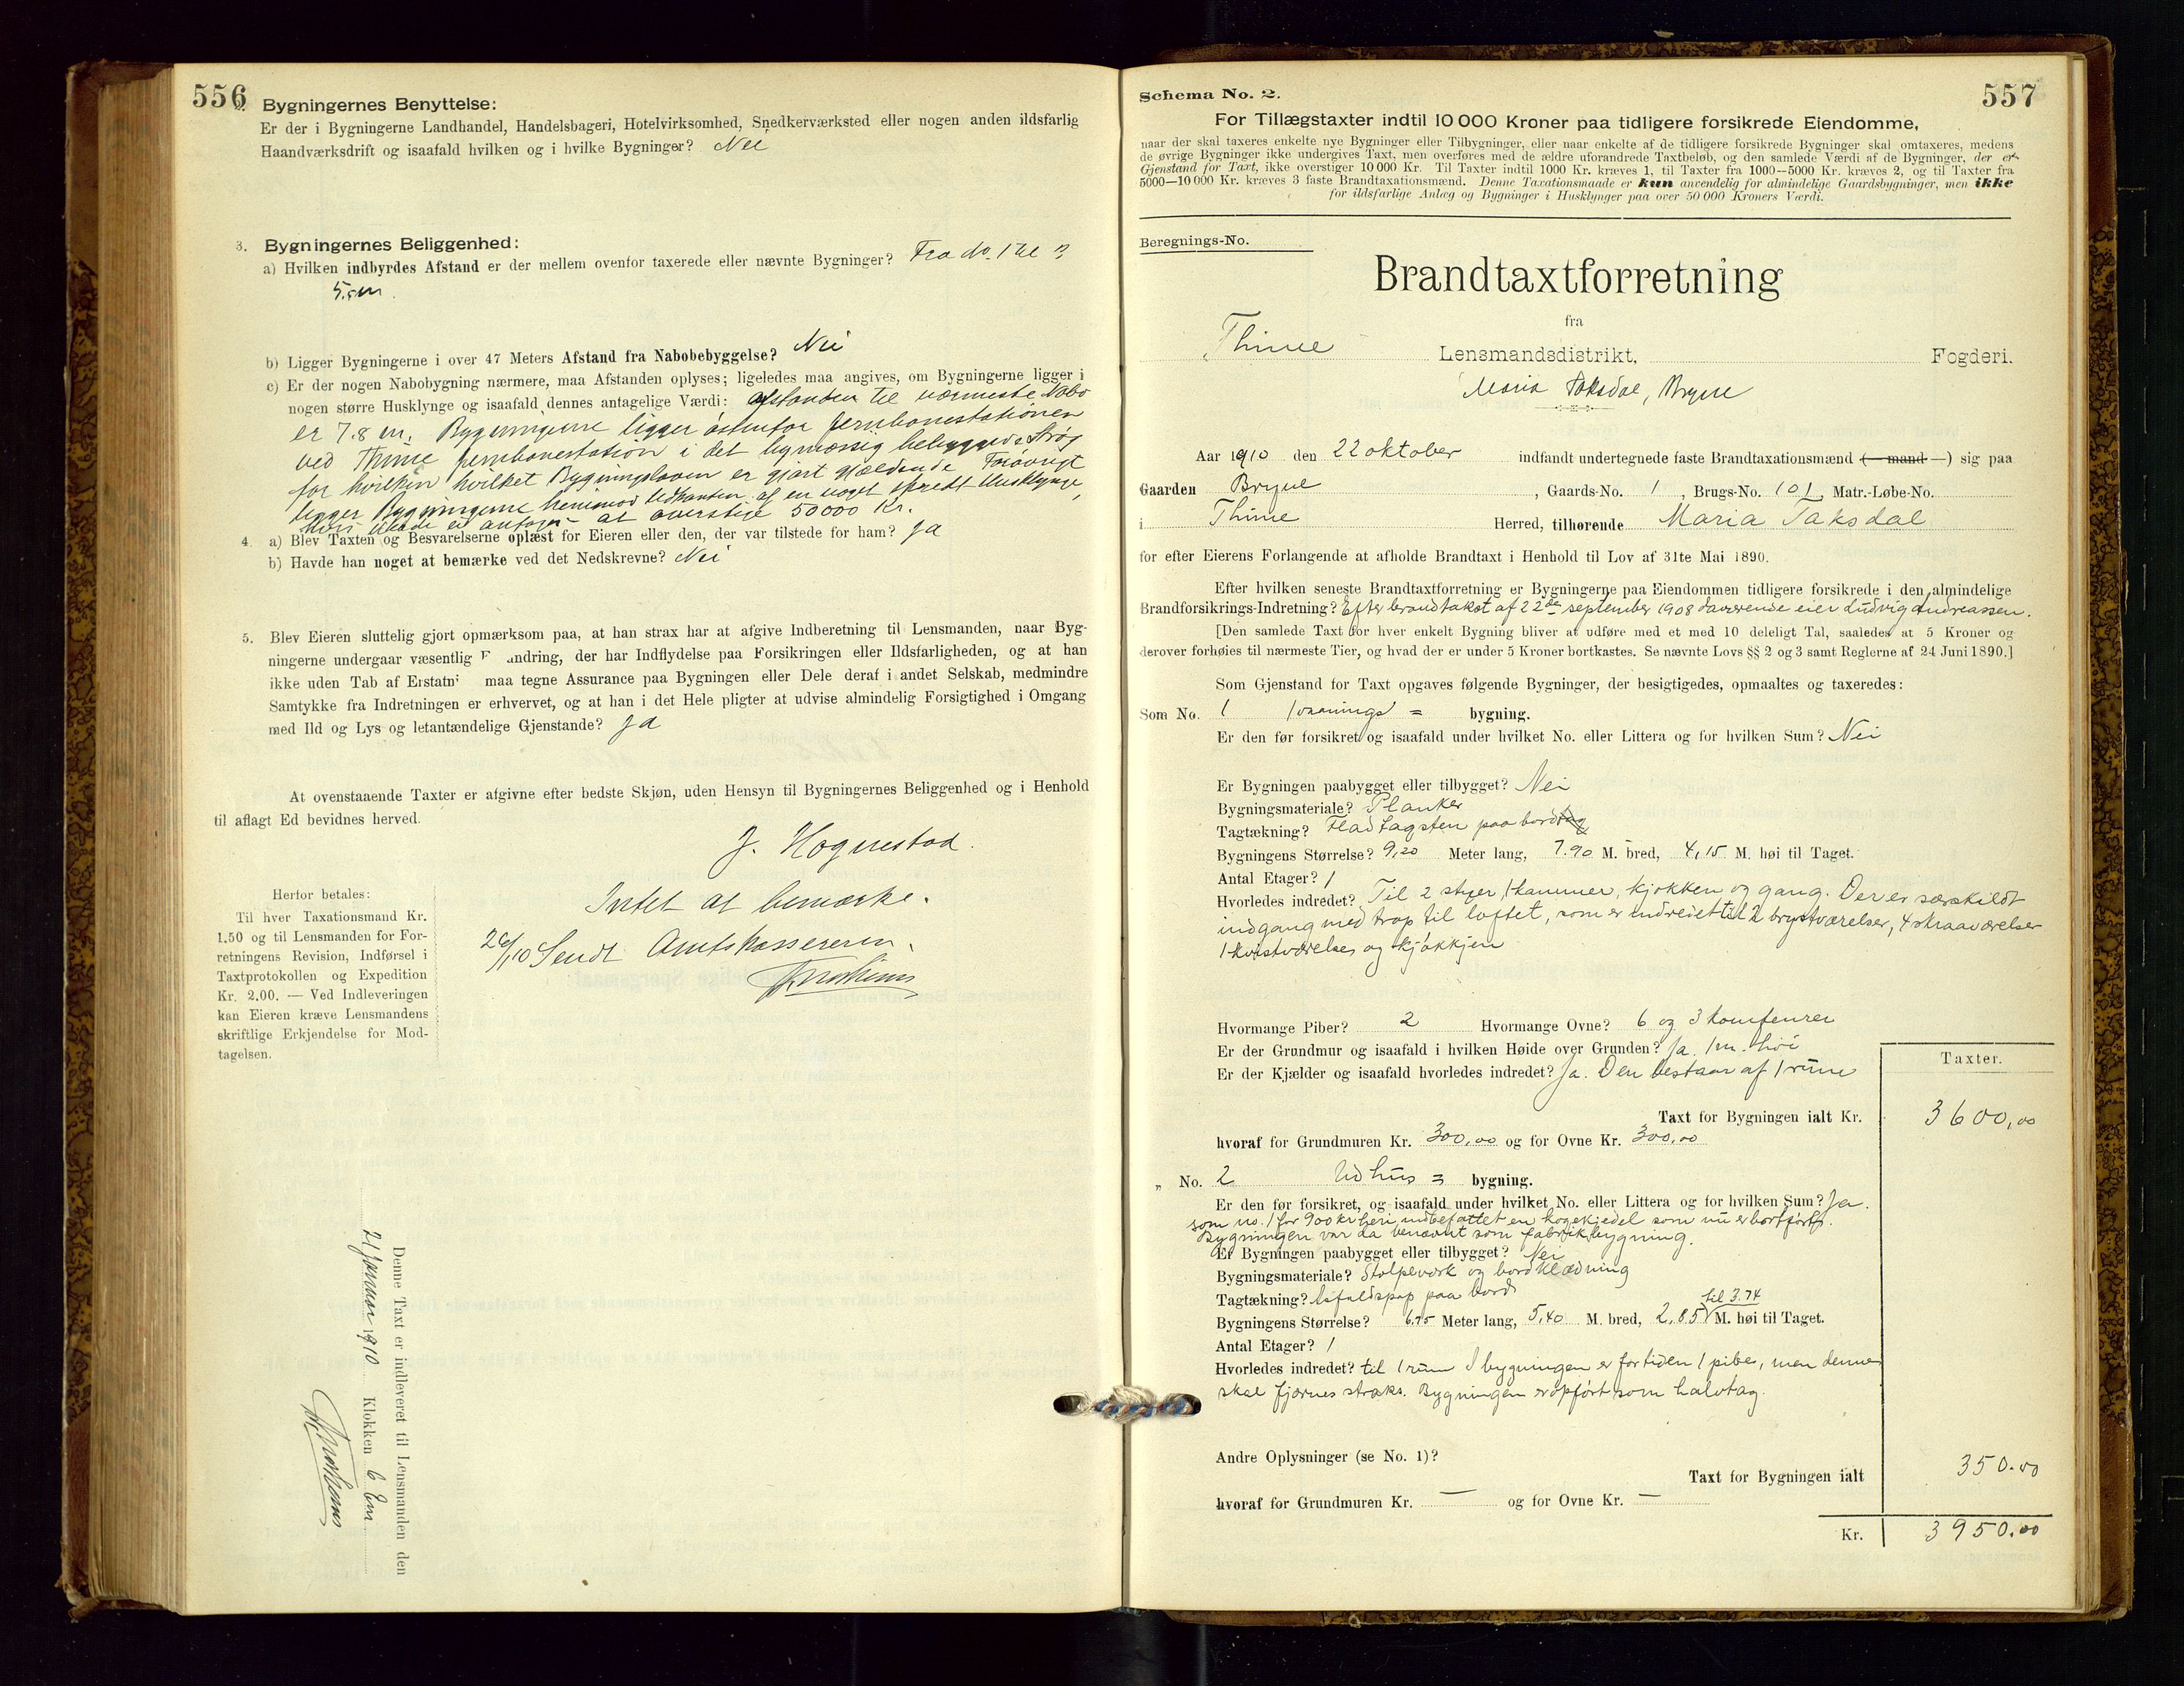 556
2. Bygningernes Benyttelse:
Er der i Bygningerne Landhandel, Handelsbageri, Hotelvirksomhed, Snedkerværksted eller nogen anden ildsfarlig
Haandværksdrift og isaafald hvilken og i hvilke Bygninger? Nei
3. Bygningernes Beliggenhed:
a) Hvilken indbyrdes Afstand er der mellem ovenfor taxerede eller nævnte Bygninger? Fra No. 1 til 2
5.5 m.
b) Ligger Bygningerne i over 47 Meters Afstand fra Nabobebyggelse? Nei
c) Er der nogen Nabobygning nærmere, maa Afstanden oplyses; ligeledes maa angives, om Bygningerne ligger i
nogen større Husklynge og isaafald dennes antagelige Værdi: afstanden til nærmeste Nabo
er 7.8 m. Bygningerne ligger østenfor jernbanestationen
ved Thime jernbanestation i det bymæssig bebyggede Strøg
for hvilken hvilket Bygningsloven er gjort gjældende Forøvrigt
ligger Bygningerne henimod Udkanten af en noget spredt Husklynge,
hvis Værdi er at overstige 50000 Kr.
4. a) Blev Taxten og Besvarelserne oplæst for Eieren eller den, der var tilstede for ham? Ja
b) Havde han noget at bemærke ved det Nedskrevne? Nei
5. Blev Eieren sluttelig gjort opmærksom paa, at han strax har at afgive Indberetning til Lensmanden, naar Byg-
ningerne undergaar væsentlig F andring, der har Indflydelse paa Forsikringen eller Ildsfarligheden, og at han
ikke uden Tab af Erstatn maa tegne Assurance paa Bygningen eller Dele deraf i andet Selskab, medmindre
Samtykke fra Indretningen er erhvervet, og at han i det Hele pligter at udvise almindelig Forsigtighed i Omgang
med Ild og Lys og letantændelige Gjenstande? Ja
At ovenstaaende Taxter er afgivne efter bedste Skjøn, uden Hensyn til Bygningernes Beliggenhed og i Henhold
til aflagt Ed bevidnes herved.
J. Hognestad.
Intet at bemærke.
26/10 Sendt Amtskassereren.
Herfor betales:
Til hver Taxationsmand Kr.
1.50 og til Lensmanden for For-
retningens Revision, Indførsel i
Taxtprotokollen og Expedition
Kr. 2.00. — Ved Indleveringen
kan Eieren kræve Lensmandens
skriftlige Erkjendelse for Mod-
tagelsen.
Denne Taxt er indleveret til Lensmanden den
21 januar 1910 Klokken 6 Em
557
Schema No. 2.
For Tillægstaxter indtil 10 000 Kroner paa tidligere forsikrede Eiendomme,
naar der skal taxeres enkelte nye Bygninger eller Tilbygninger, eller naar enkelte af de tidligere forsikrede Bygninger skal omtaxeres, medens
de øvrige Bygninger ikke undergives Taxt, men overføres med de ældre uforandrede Taxtbeløb, og den samlede Værdi af de Bygninger, der er
Gjenstand for Taxt, ikke overstiger 10 000 Kr. Til Taxter indtil 1000 Kr. kræves 1, til Taxter fra 1000—5000 Kr. kræves 2, og til Taxter fra
5000—10 000 Kr. kræves 3 faste Brandtaxationsmænd. Denne Taxationsmaade er kun anvendelig for almindelige Gaardsbygninger, men ikke
for ildsfarlige Anlæg og Bygninger i Husklynger paa over 50 000 Kroners Værdi.
Beregnings-No.
Brandtaxtforretning
fra
Thime Lensmandsdistrikt, Fogderi.
Maria Taksdal, Bryne
Aar 1910 den 22 oktober indfandt undertegnede faste Brandtaxationsmænd (— mand —) sig paa
Gaarden Bryne, Gaards-No. 1, Brugs-No. 101, Matr.-Løbe-No.
i Thime Herred, tilhørende Maria Taksdal
for efter Eierens Forlangende at afholde Brandtaxt i Henhold til Lov af 31te Mai 1890.
Efter hvilken seneste Brandtaxtforretning er Bygningerne paa Eiendommen tidligere forsikrede i den almindelige
Brandforsikrings-Indretning? Efter brandtakst af 22de september 1908 daværende eier Ludvig Andreassen.
[Den samlede Taxt for hver enkelt Bygning bliver at udføre med et med 10 deleligt Tal, saaledes at 5 Kroner og
derover forhøies til nærmeste Tier, og hvad der er under 5 Kroner bortkastes. Se nævnte Lovs §§ 2 og 3 samt Reglerne af 24 Juni 1890.]
Som Gjenstand for Taxt opgaves følgende Bygninger, der besigtigedes, opmaaltes og taxeredes:
Som No. 1 Vaanings = bygning.
Er den før forsikret og isaafald under hvilket No. eller Littera og for hvilken Sum? Nei
Er Bygningen paabygget eller tilbygget? Nei
Bygningsmateriale? Planker
Tagtækning? Flad tagsten paa bordtag
Bygningens Størrelse? 9,20 Meter lang, 7.90 M. bred, 4,15 M. høi til Taget.
Antal Etager? 1
Hvorledes indredet? Til 2 stuer, 1 kammer, kjøkken og gang. Der er særskildt
indgang med trap til loftet, som er indredet til 2 brystværelser, 4 skraaværelser
1 kvistværelse og kjøkkjen
Hvormange Piber? 2 Hvormange Ovne? 6 og 3 komfurer
Er der Grundmur og isaafald i hvilken Høide over Grunden? Ja. 1 m. høi
Er der Kjælder og isaafald hvorledes indredet? Ja. Den bestaar af 1 rum
Taxter.
Taxt for Bygningen ialt Kr. 3600,00
hvoraf for Grundmuren Kr. 300,00 og for Ovne Kr. 300,00
„ No. 2 Udhus = bygning.
Er den før forsikret, og isaafald under hvilket No. eller Littera og for hvilken Sum? Ja.
som no. 1 for 900 kr heri indbefattet en kogekjedel som nu er bortført.
Bygningen var da benævnt som fabrikbygning.
Er Bygningen paabygget eller tilbygget? Nei
Bygningsmateriale? Stolpeverk og bordklædning
Tagtækning? Asfaldtpap paa bord
Bygningens Størrelse? 6,75 Meter lang, 5,40 M. bred, 2,85 til 3.74 M. høi til Taget.
Antal Etager? 1
Hvorledes indredet? til 1 rum I bygningen er fortiden 1 pibe, men denne
skal fjærnes straks. Bygningen er opført som halvtag.
Andre Oplysninger (se No. 1)?
Taxt for Bygningen ialt 350.00
hvoraf for Grundmuren Kr. — og for Ovne Kr. —
Kr. 3950.00